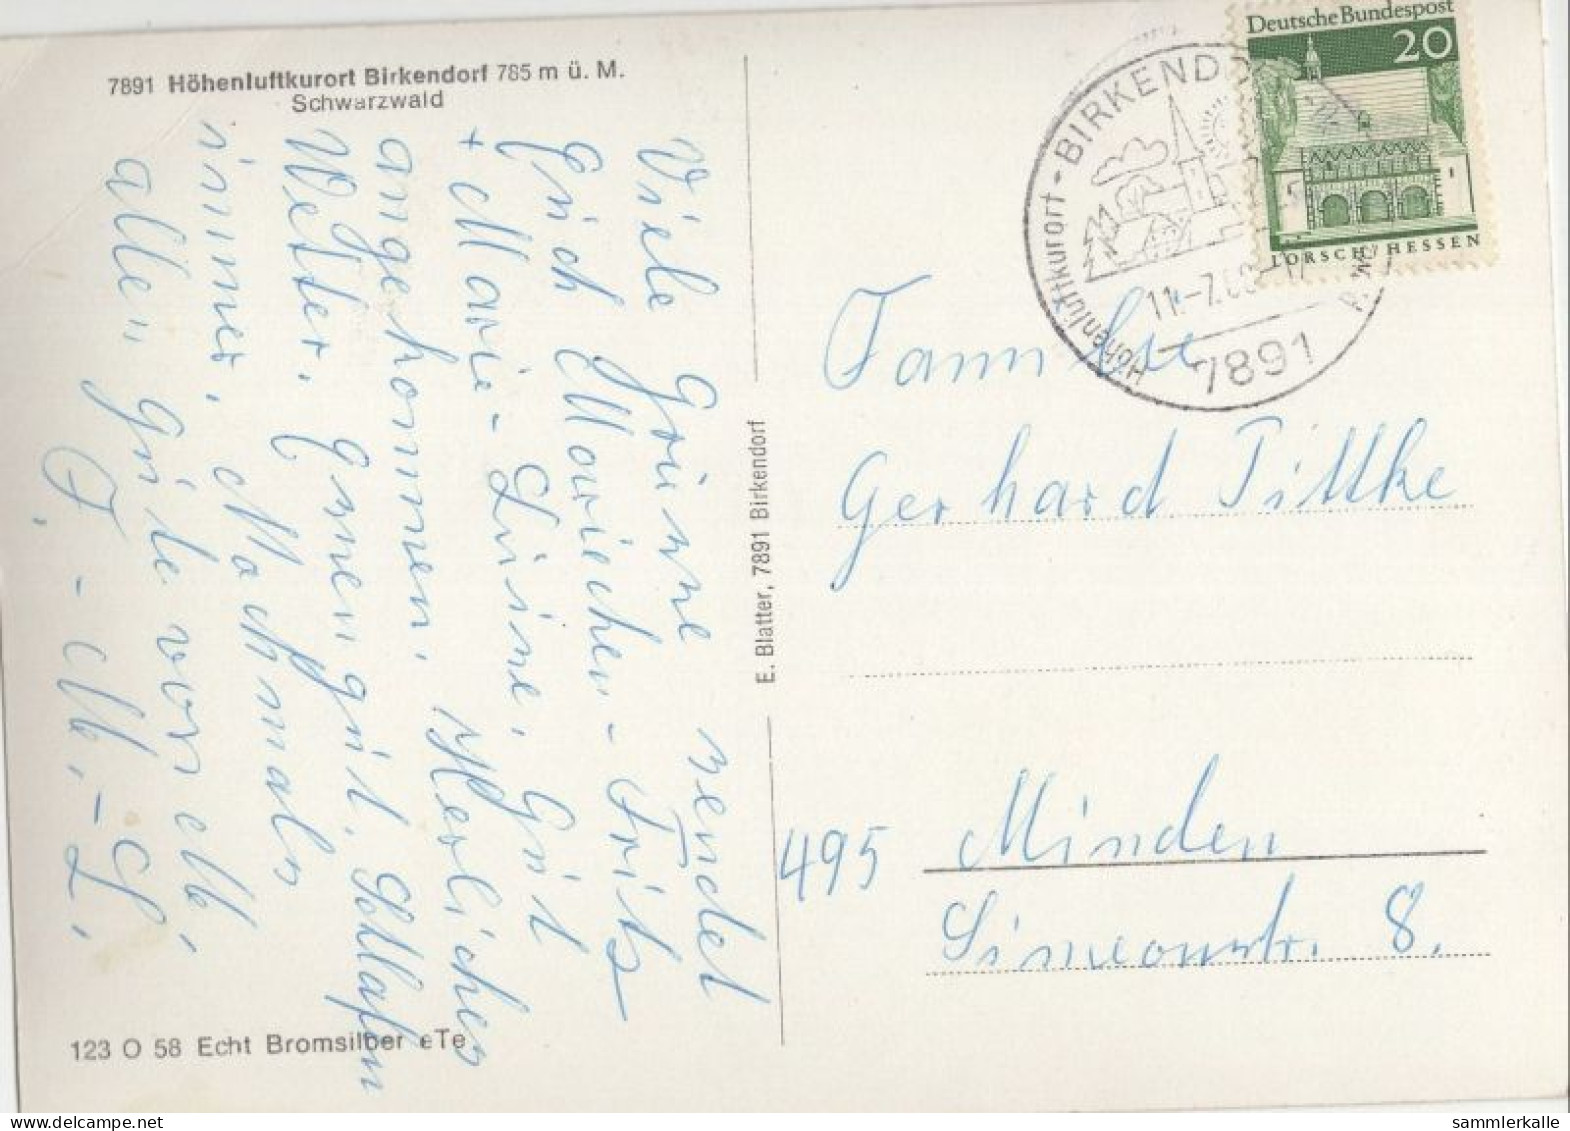 7891 Höhenluftkurort Birkendorf 785 m ü. M.
Schwarzwald
Viele Grüsse sendet
Euch Mariechen - Fritz
+ Marie - Luise. Gut
angekommen. Herrliches
Wetter. Essen gut. Schlafen
immer. Nochmals
alles gute von M.
F. - M. - L.
123 O 58 Echt Bromsilber eTe
E. Blatter, 7891 Birkendorf
Deutsche Bundespost
20
LORSCH/HESSEN
Höhenluftkurort - BIRKENDO
11.-7.
7891
Familie
Gerhard Tittke
495 Minden
Simeonstr. 8.
sammlerkalle